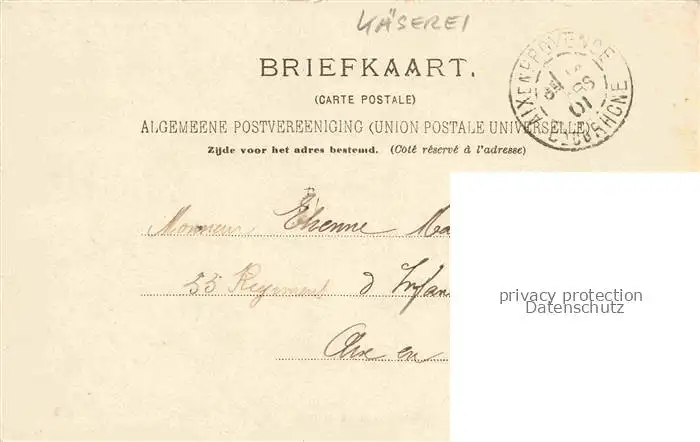 KÄSEREI
BRIEFKAART.
(CARTE POSTALE)
ALGEMEENE POSTVEREENIGING (UNION POSTALE UNIVERSELLE)
Zijde voor het adres bestemd. (Côté réservé à l'adresse)
AIX EN PROVENCE
BOUCHES DU RHONE
01
Monsieur Etienne Ma
55 Regiment d'Infan
Aix en
privacy protection
Datenschutz